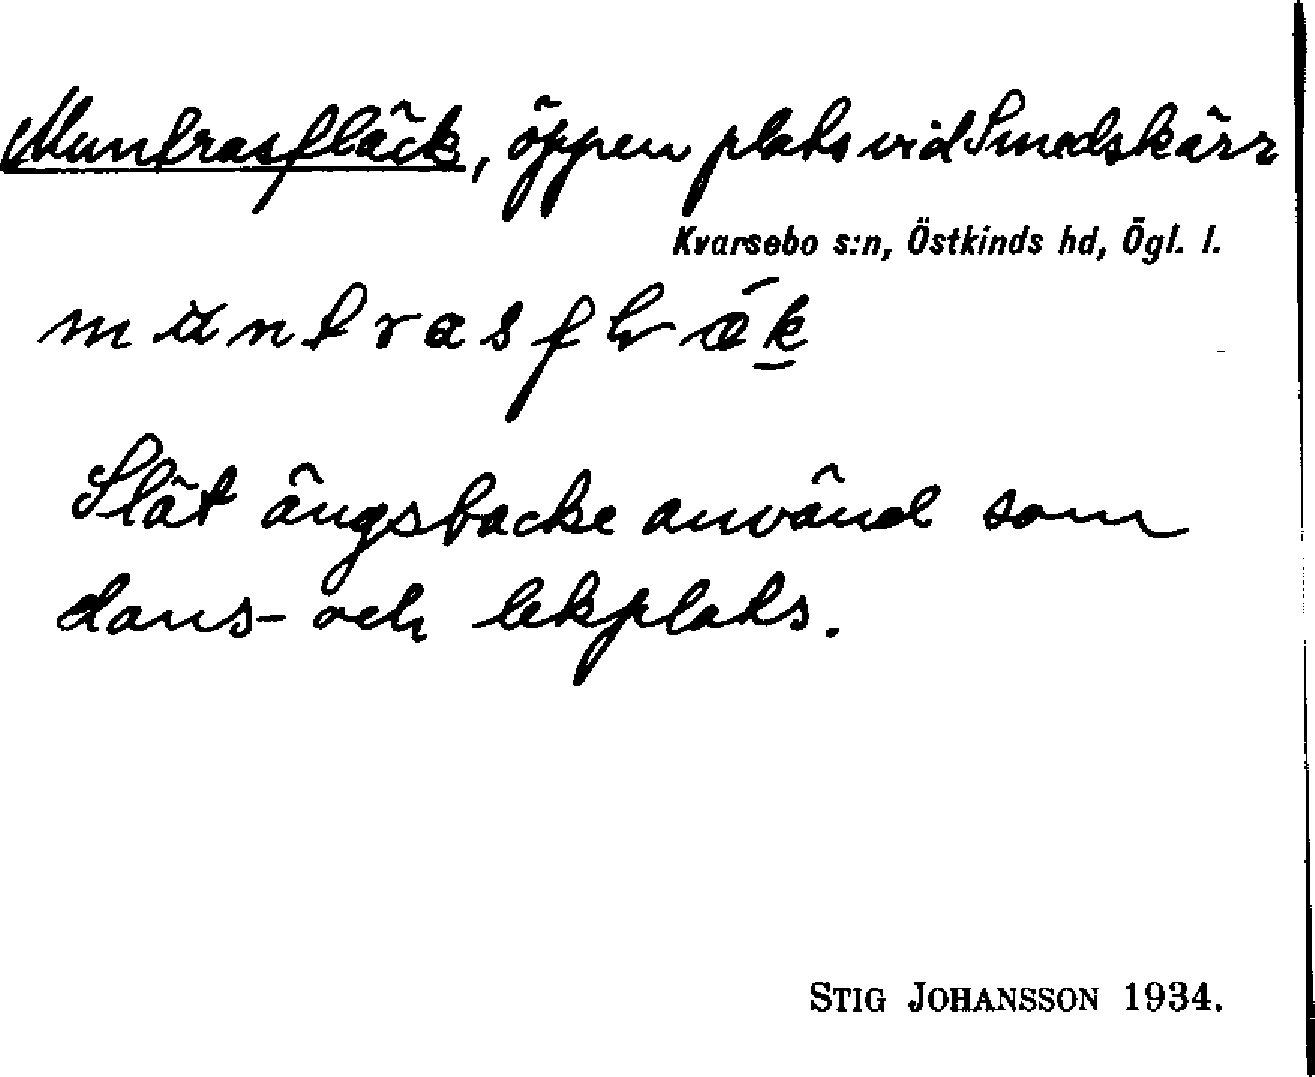 Muntrasfläck, öppen plats vid Smedskärr
Kvarsebo s:n, Östkinds hd, Ögl. l.
Slät ängsbacke använd som
dans- och lekplats.
STIG JOHANSSON 1934.